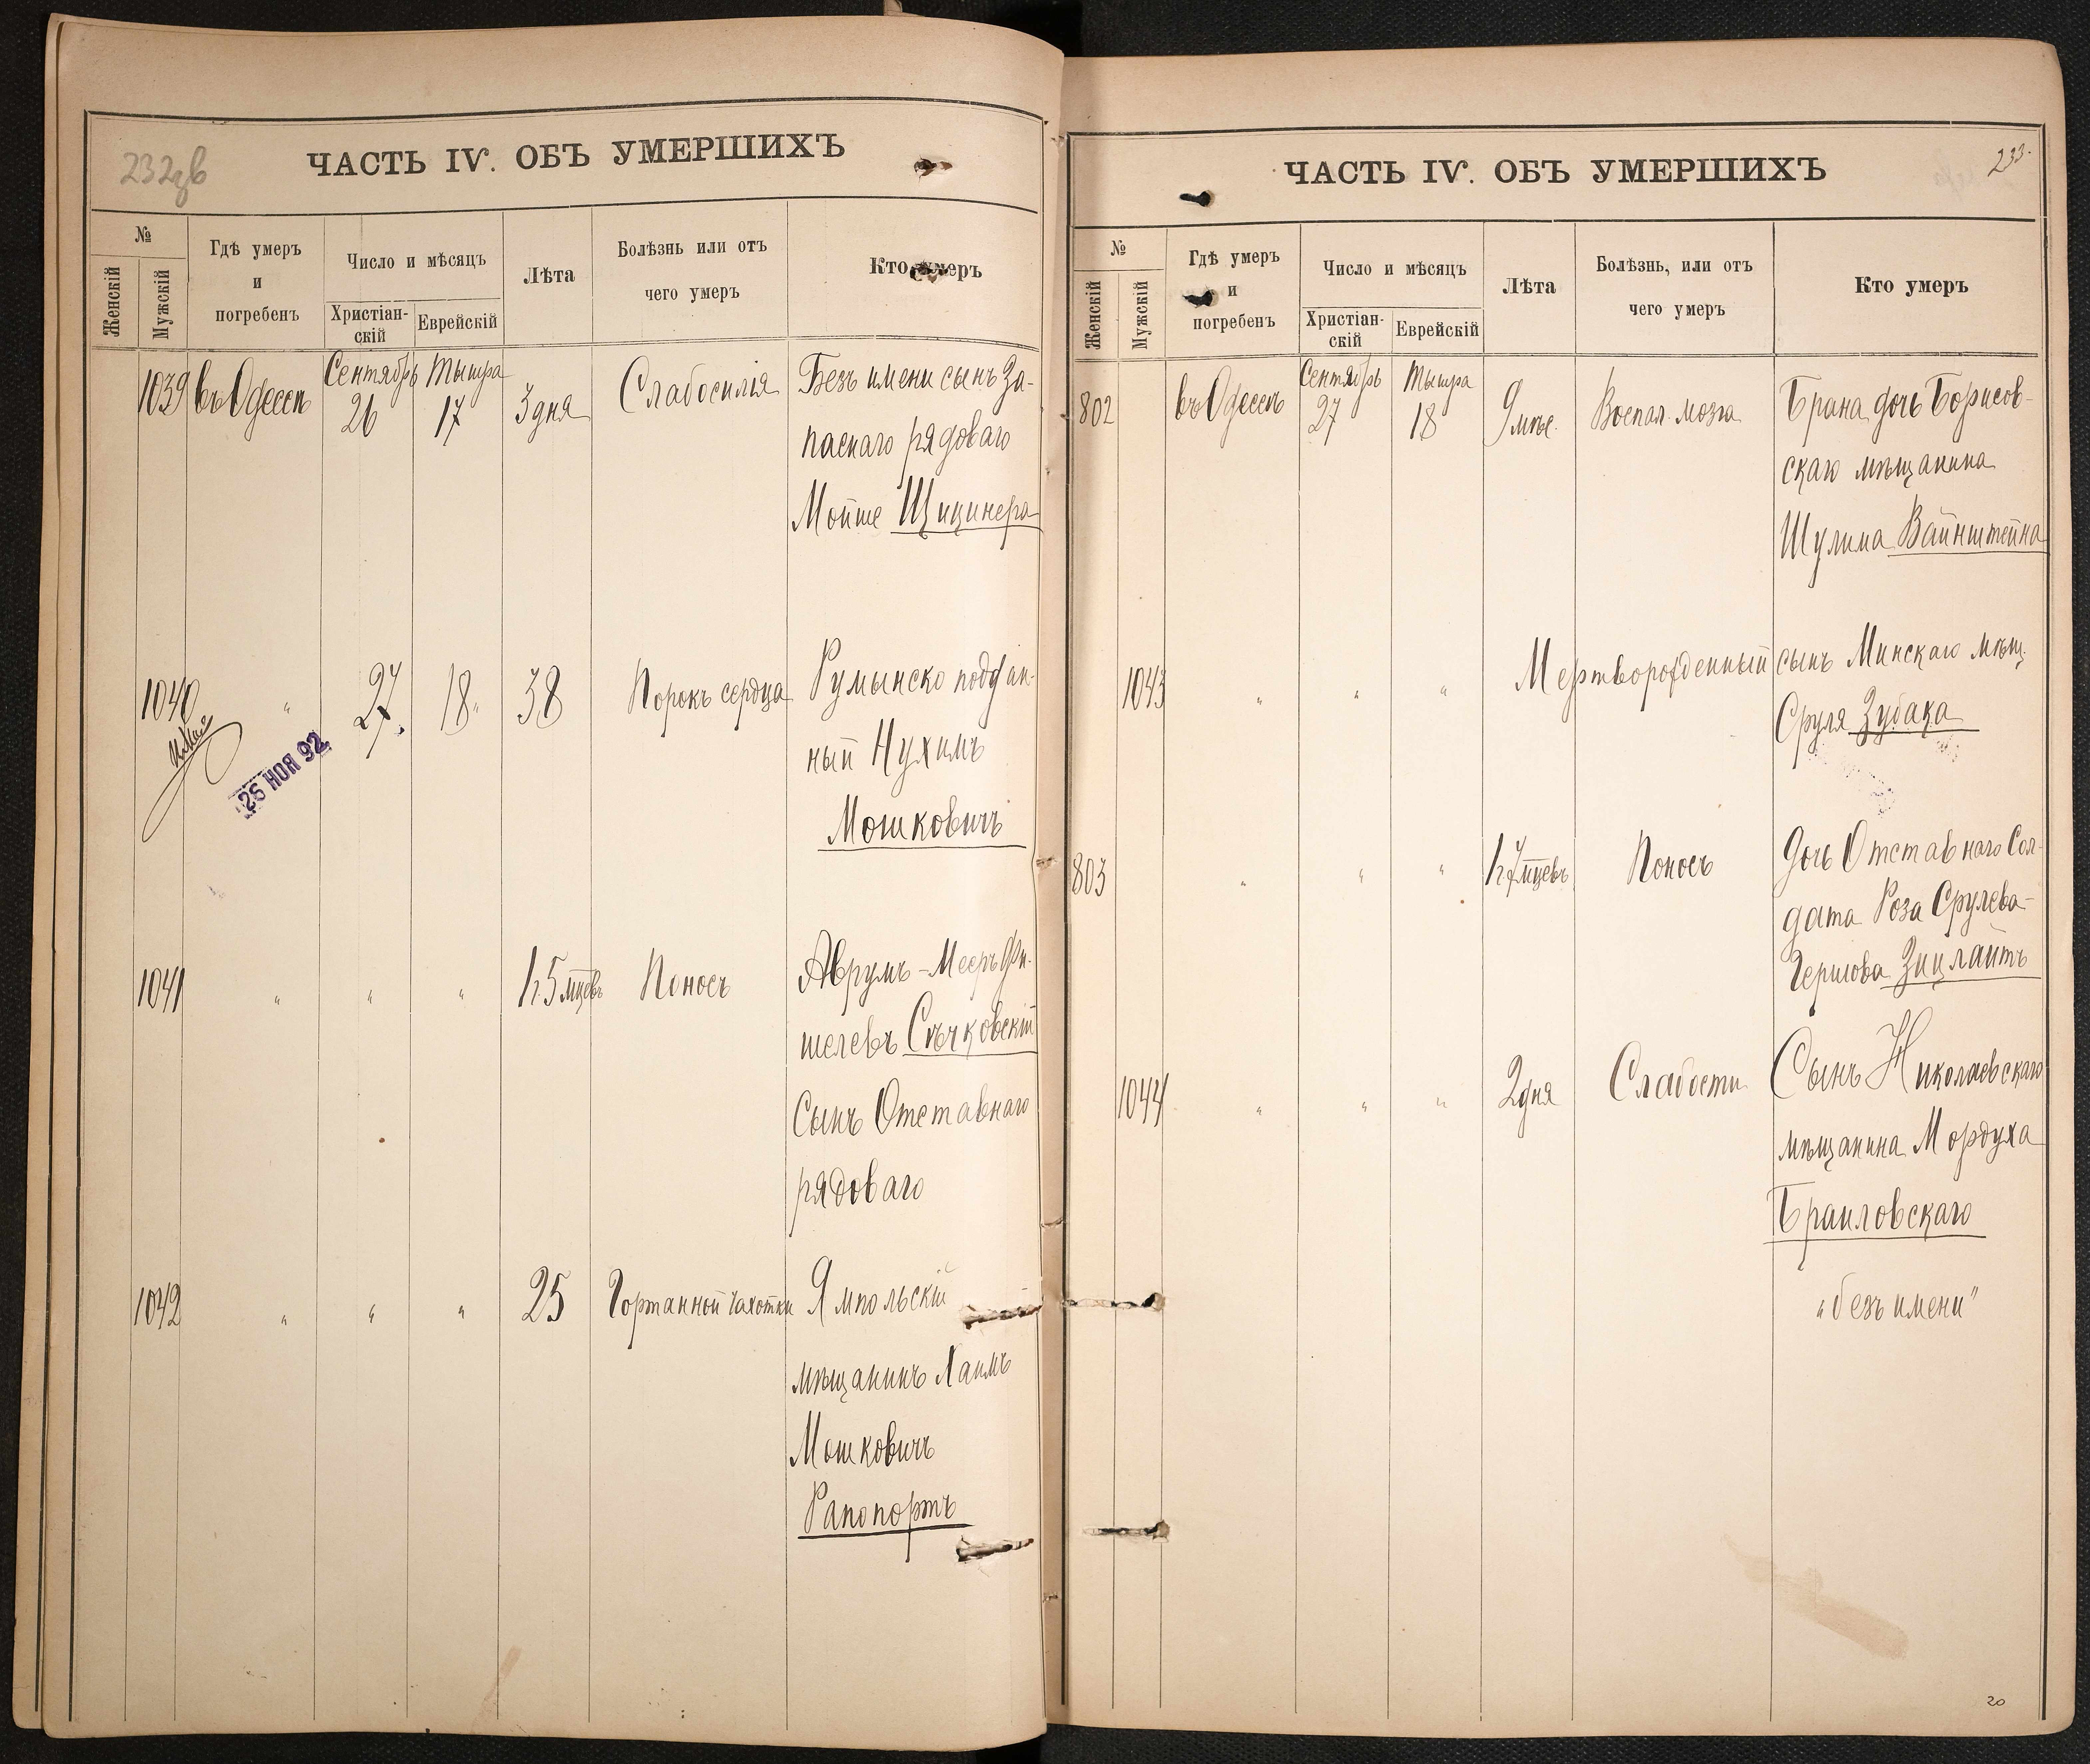 232зв
ЧАСТЬ IV. ОБЪ УМЕРШИХЪ
№
Женскій
Мужскій
Гдѣ умеръ
и
погребенъ
Число и мѣсяцъ
Христіан-
скій
Еврейскій
Лѣта
Болѣзнь или отъ
чего умеръ
Кто умеръ
1039 въ Одессѣ Сентябрь 26 Тышра 17 3 дня Слабосилія Безъ имени сынъ За-
паснаго рядоваго
Мойше Щицинера
1040 " 27. 18 38 Порокъ сердца Румынско поддан-
ный Нухимъ
Мошковичъ
26 НОЯ 92
1041 " " " 1. 5 мцевъ Поносъ Аврумъ-Мееръ Фи-
шелевъ Сѣчковскій
Сынъ Отставнаго
рядоваго
1042 " " " 25 Гортанной чахотки Ямпольскій
мѣщанинъ Хаимъ
Мошковичъ
Рапопортъ
233.
ЧАСТЬ IV. ОБЪ УМЕРШИХЪ
№
Женскій
Мужскій
Гдѣ умеръ
и
погребенъ
Число и мѣсяцъ
Христіан-
скій
Еврейскій
Лѣта
Болѣзнь, или отъ
чего умеръ
Кто умеръ
802 въ Одессѣ Сентябрь 27 Тышра 18 9 мѣс. Воспал. мозга Брана дочь Борисов-
скаго мѣщанина
Шулима Вайнштейна
1043 " " " Мертворожденный сынъ Минскаго мѣщ.
Сруля Зубака
803 " " " 1. 7 мцевъ Поносъ Дочь Отставнаго Сол-
дата Роза Срулева-
Гершова Зицлайтъ
1044 " " " 2 дня Слабости Сынъ Николаевскаго
мѣщанина Мордуха
Браиловскаго
"безъ имени"
20